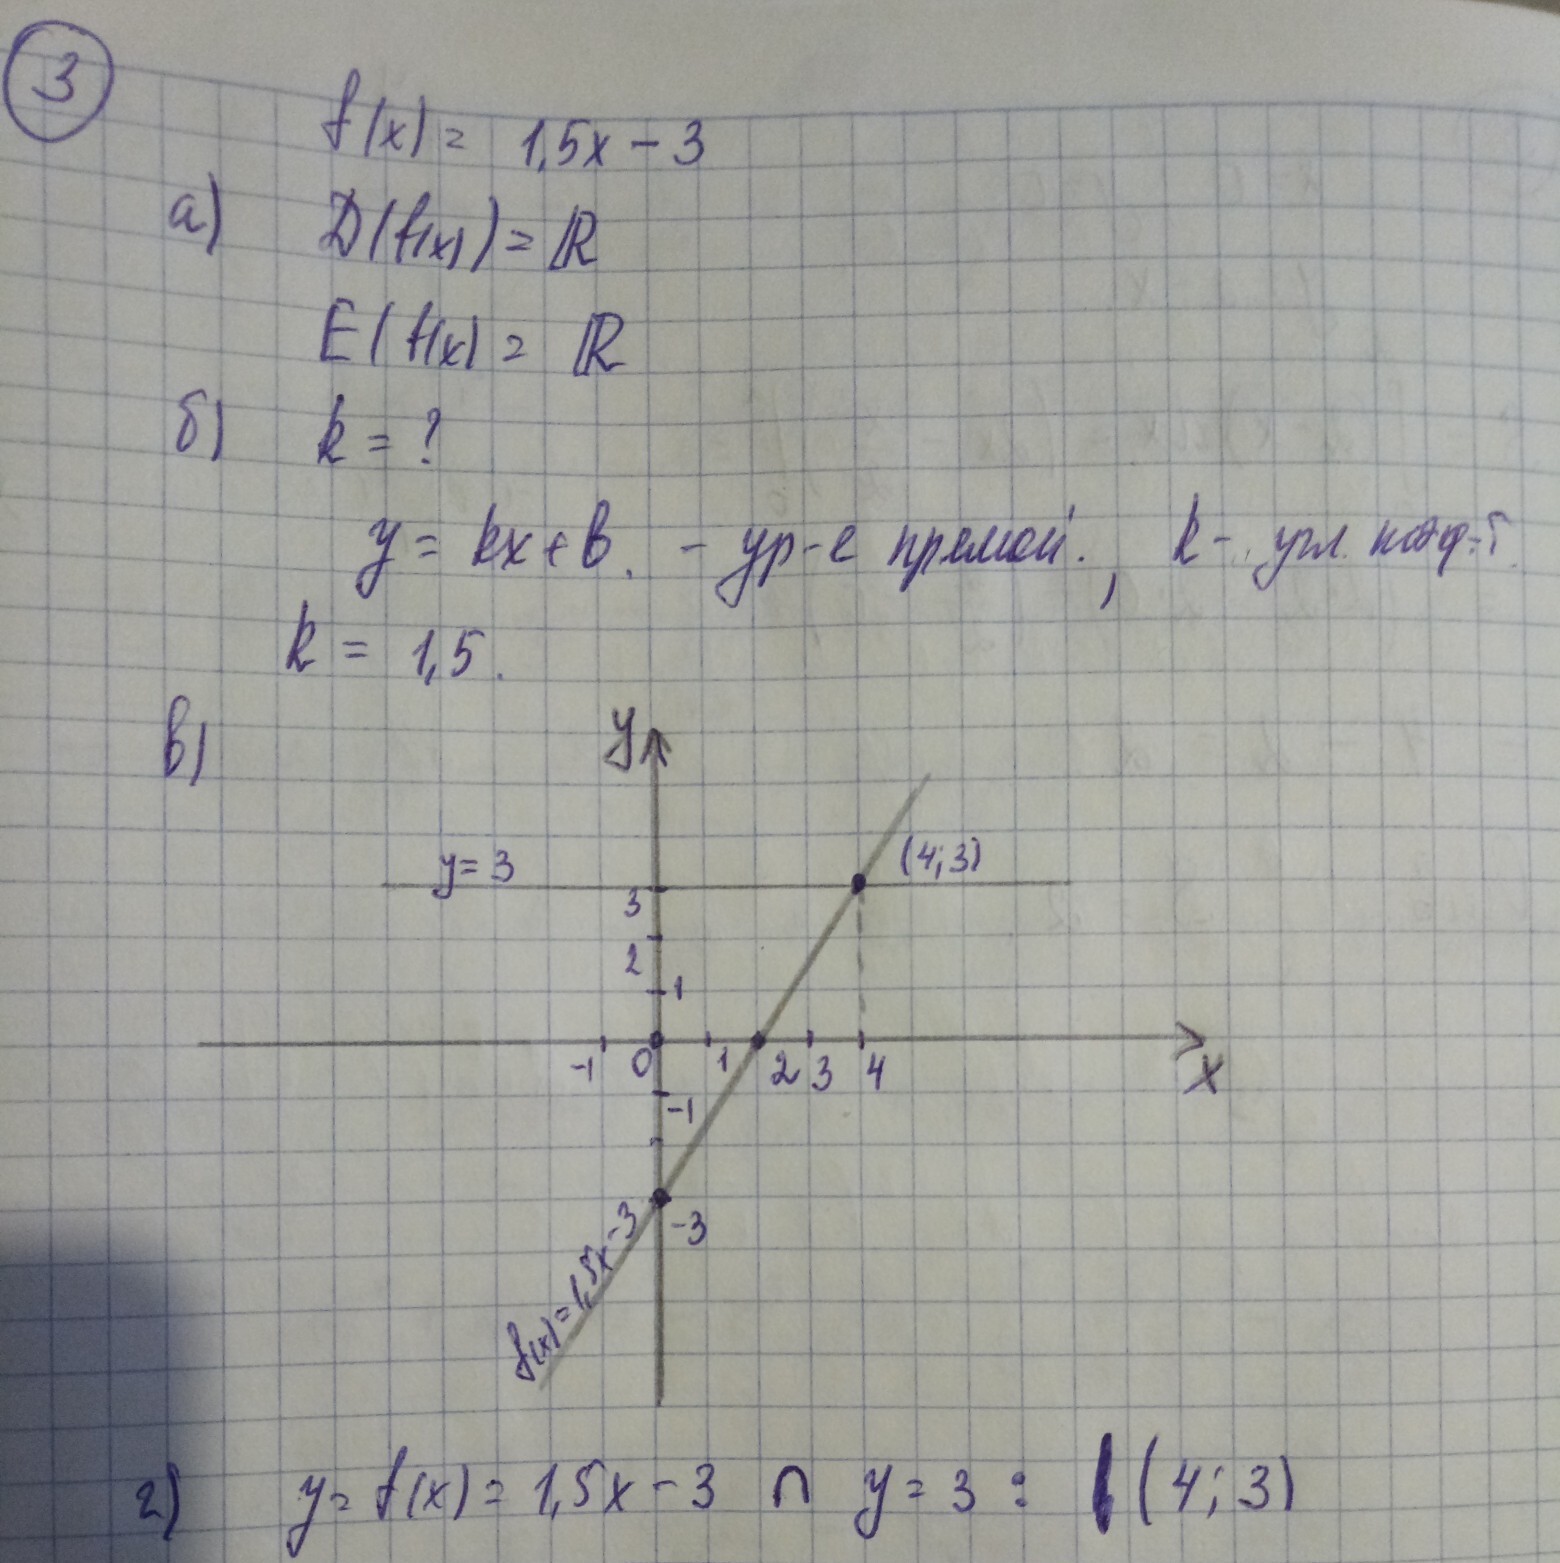 3
f(x) = 1,5x - 3
а) D(f(x)) = ℝ
E(f(x) = ℝ
б) k = ?
y = kx + b. - ур-е прямой., k - угл. коэф-т.
k = 1,5.
в) y
y = 3 (4; 3)
3
2
1
-1 0 1 2 3 4 x
-1
-3
f(x) = 1,5x - 3
г) y = f(x) = 1,5x - 3 ∩ y = 3 : (4; 3)